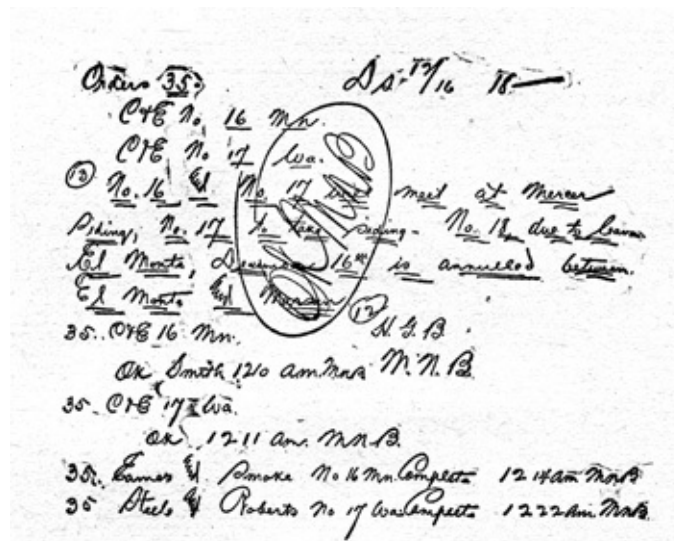 Orders 35. Ds. 12/16 18.—
C&E No 16 Mn.
C&E No 17 Wa.
(13) No. 16 & No 17 will meet at Mercer
Siding, No. 17 to take siding. No. 18, due to leave
El Monte, December 16th is annulled between
El Monte & Mercer
(12) H. G. B.
35. C&E 16 Mn.
OK Smith 1210 am. M.N.B.
35. C&E 17 Wa.
OK 1211 am. M.N.B.
35. Eames & Smoke No 16 Mn. Complete 1214am MNB
35 Steele & Roberts No 17 Wa. Complete 1222 am. MNB.